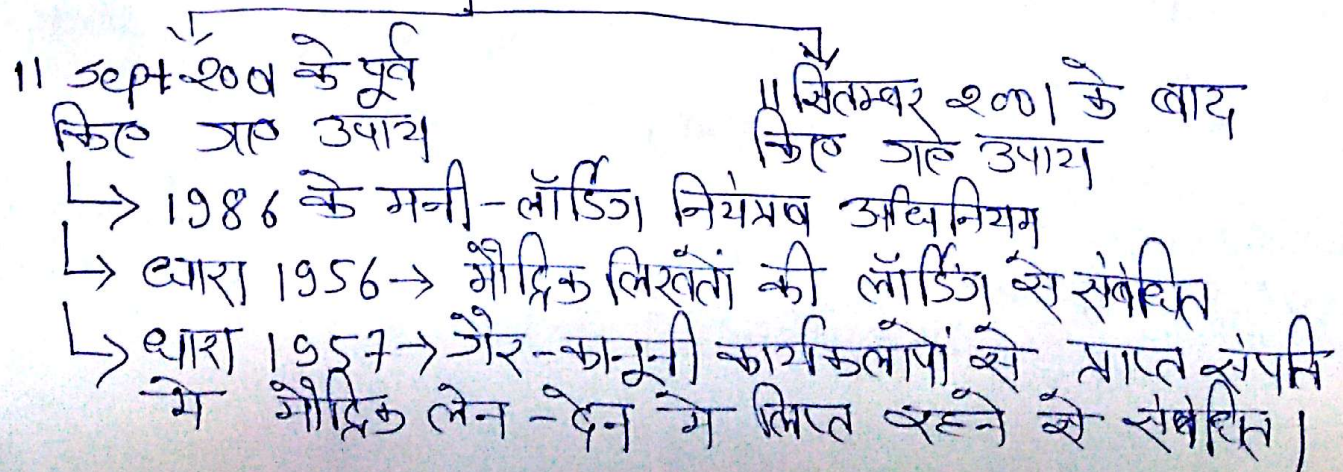 11 Sept 2001 के पूर्व
किए गए उपाय
11 सितम्बर 2001 के बाद
किए गए उपाय
→ 1986 के मनी-लॉर्डिंग नियंत्रण अधिनियम
→ धारा 1956 → मौद्रिक लिखतों की लॉर्डिंग से संबंधित
→ धारा 1957 → गैर-कानूनी कार्यकलापों से प्राप्त संपत्ति
मे मौद्रिक लेन-देन मे लिप्त रहने से संबंधित।